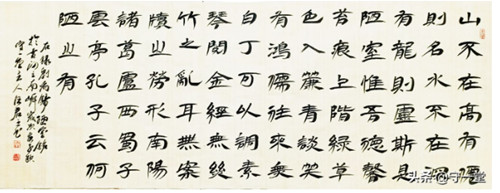 山不在高有僊
則名水不在深
有龍則靈斯是
陋室惟吾德馨
苔痕上階綠草
色入簾青談笑
有鴻儒往來無
白丁可以調素
琴閱金經無絲
竹之亂耳無案
牘之勞形南陽
諸葛廬西蜀子
雲亭孔子云何
陋之有
右錄劉禹錫陋室銘
头条 @守一堂